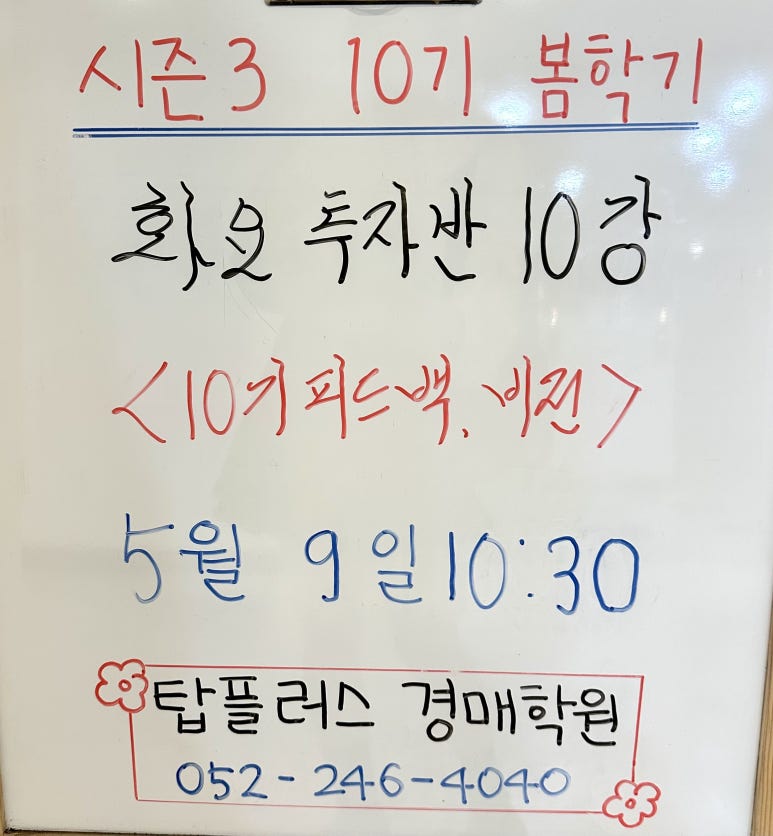 시즌3 10기 봄학기
화요 투자반 10강
<10기 피드백, 비전>
5월 9일 10:30
탑플러스 경매학원
052-246-4040